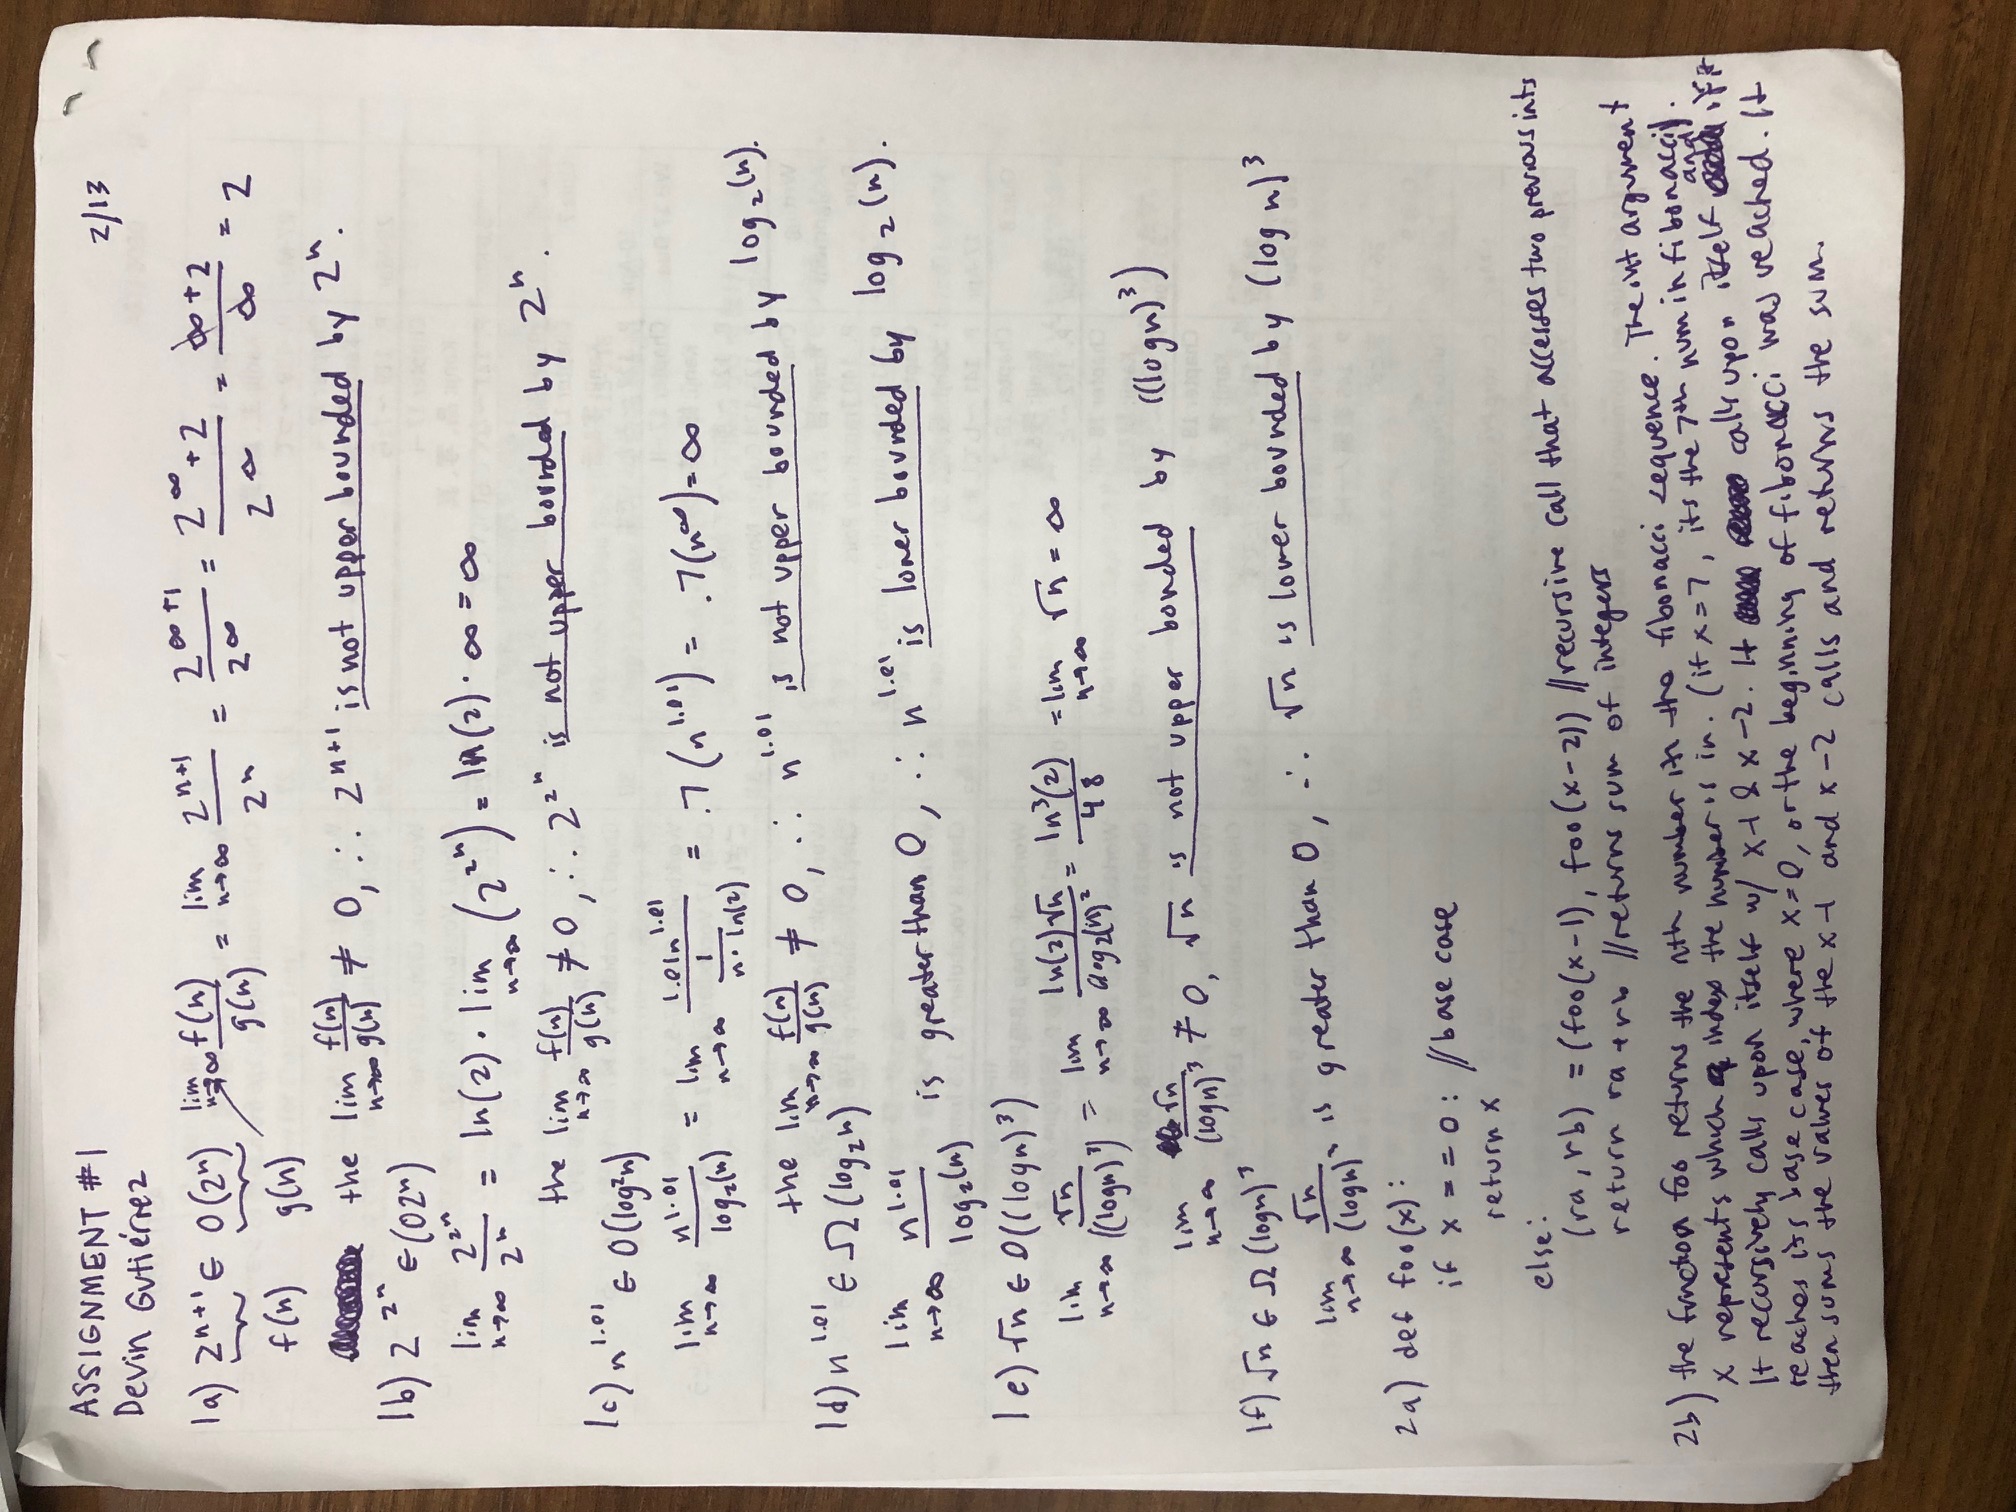 ASSIGNMENT #1 2/13
Devin Gutiérrez
1a) 2^(n+1) ∈ O(2^n) lim n→∞ f(n)/g(n) = lim n→∞ 2^(n+1)/2^n = 2^(∞+1)/2^∞ = 2^∞+2/2^∞ = ∞+2/∞ = 2
f(n) g(n)
the lim n→∞ f(n)/g(n) ≠ 0, ∴ 2^(n+1) is not upper bounded by 2^n.
1b) 2^2^n ∈ (O2^n)
lim n→∞ 2^2^n/2^n = ln(2) · lim n→∞ (2^2^n) = ln(2) · ∞ = ∞
the lim n→∞ f(n)/g(n) ≠ 0, ∴ 2^2^n is not upper bounded by 2^n.
1c) n^1.01 ∈ O(log²n)
lim n→∞ n^1.01/log₂(n) = lim n→∞ 1.01n^1.01/(1/(n·ln(2))) = .7(n^1.01) = .7(n^∞) = ∞
the lim n→∞ f(n)/g(n) ≠ 0, ∴ n^1.01 is not upper bounded by log₂(n).
1d) n^1.01 ∈ Ω(log₂n)
lim n→∞ n^1.01/log₂(n) is greater than 0, ∴ n^1.01 is lower bounded by log₂(n).
1e) √n ∈ O((logn)³)
lim n→∞ √n/((logn)³) = lim n→∞ ln(2)√n/6log₂(n)² = ln³(2)/48 = lim n→∞ √n = ∞
lim n→∞ √n/(logn)³ ≠ 0, √n is not upper bonded by ((logn)³)
1f) √n ∈ Ω(logn)³
lim n→∞ √n/(logn)³ is greater than 0, ∴ √n is lower bounded by (log n)³
2a) def foo(x):
if x == 0: //base case
return x
else:
(ra, rb) = (foo(x-1), foo(x-2)) //recursive call that accesses two previous ints
return ra + rb //returns sum of integers
2b) the function foo returns the nth number in the fibonacci sequence. The int argument
x represents which index the number is in. (if x=7, its the 7th num in fibonacci).
It recursively calls upon itself w/ x-1 & x-2. It calls upon itself and if it
reaches its base case, where x=0, or the beginning of fibonacci was reached. It
then sums the values of the x-1 and x-2 calls and returns the sum.